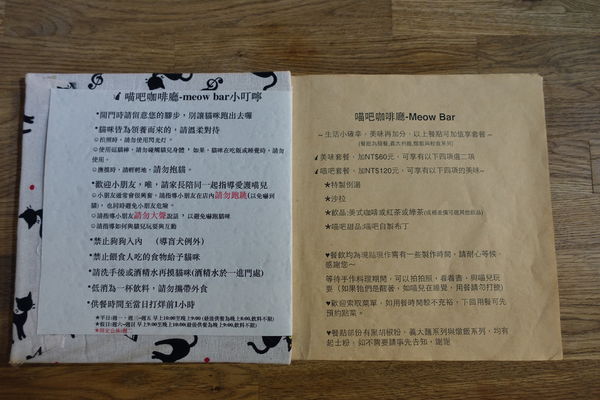 喵吧咖啡廳-meow bar小叮嚀
*開門時請留意您的腳步，別讓貓咪跑出去喔
*貓咪皆為領養而來的，請溫柔對待
☺拍照時，請勿使用閃光燈。
☺使用逗貓棒，請勿碰觸貓兒身體，如果，貓咪在吃飯或睡覺時，請勿
使用。
☺撫摸時，請輕輕地，請勿抱貓。
*歡迎小朋友，唯，請家長陪同一起指導愛護喵兒
☺小朋友通常會很興奮，請指導小朋友在店內請勿跑跳(以免嚇到
貓)，也同時避免小朋友危險。
☺請指導小朋友請勿大聲說話，以避免嚇跑貓咪
☺請指導如何與貓兒玩耍與互動
*禁止狗狗入內 (導盲犬例外)
*禁止餵食人吃的食物給予貓咪
*請洗手後或酒精水再摸貓咪(酒精水於一進門處)
*低消為一杯飲料，請勿攜帶外食
*供餐時間至當日打烊前1小時
喵吧咖啡廳-Meow Bar
~生活小確幸，美味再加分，以上餐點可加值享套餐~
美味套餐，加NT$60元，可享有以下四項選二項
喵吧套餐，加NT$120元，可享有以下四項的美味~
★特製例湯
★沙拉
★飲品:美式咖啡或紅茶或綠茶
★喵吧甜品:喵吧自製布丁
♥餐飲均為現點現作需有一些製作時間，請耐心等候，
感謝您~
等待手作料理期間，可以拍拍照，看看書，與喵兒玩
耍（如果牠們是醒著，如喵兒在睡覺，用餐請勿打擾）
♥歡迎索取菜單，如用餐時間較不充裕，下回用餐可先
預約點菜。
♥餐點部份有黑胡椒粉，義大麵系列與燉飯系列，均有
起士粉，如不需要請事先告知，謝謝